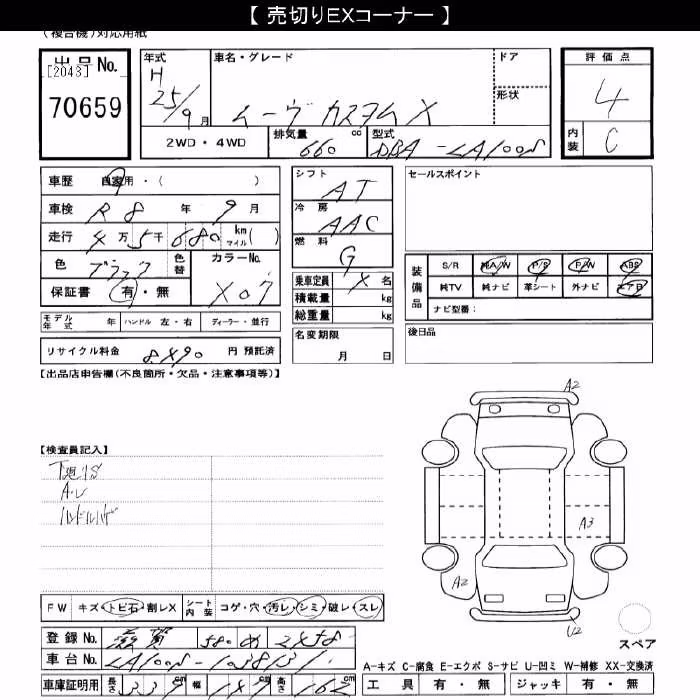 【 売切りEXコーナー 】
(複合機)対応用紙
出品No.
[2043]
70659
年式
H
25/9月
車名・グレード
ムーヴ カスタム X
ドア
形状
評価点
4
内装
C
2WD・4WD
排気量
660
cc
型式
DBA-LA100S
車歴
自家用・( )
車検 R 8 年 9 月
走行 4 万 5 千 680 km マイル ( )
色 ブラック
色替
カラーNo.
X07
保証書 有・無
シフト
AT
冷房
AAC
燃料
G
乗車定員 名
積載量 kg
総重量 kg
セールスポイント
装備品
S/R 純A/W P/S P/W ABS
純TV 純ナビ 革シート 外ナビ エアB
ナビ型番:
モデル年式 年 ハンドル 左・右 ディーラー・並行
名変期限
月 日
後日品
リサイクル料金 円 預託済
【出品店申告欄(不良箇所・欠品・注意事項等)】
A2
【検査員記入】
A3
A2
U2
FW キズ・トビ石・割レX
シート内装 コゲ・穴・汚レ・シミ・破レ・スレ
スペア
登録No. 滋賀 580
車台No.
A-キズ C-腐食 E-エクボ S-サビ U-凹ミ W-補修 XX-交換済
車庫証明用 長さ cm 幅 cm 高さ cm
工具 有・無 ジャッキ 有・無